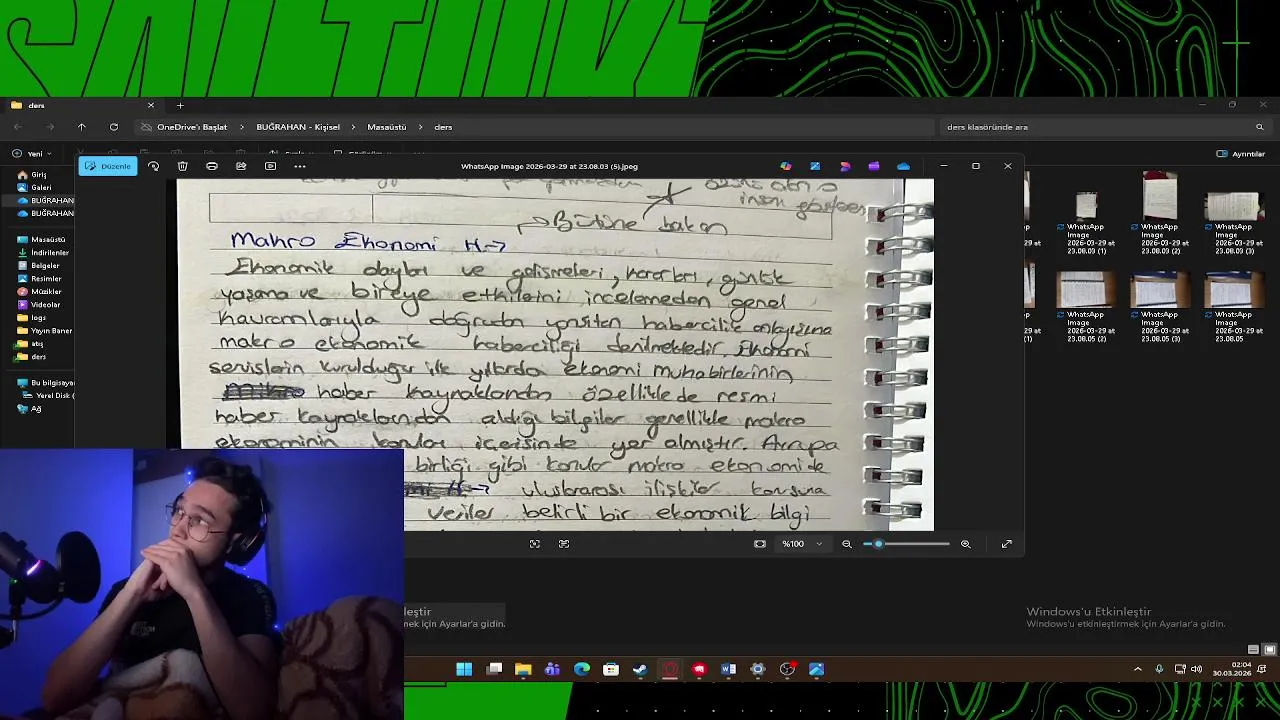 ders
OneDrive'ı Başlat > BUĞRAHAN - Kişisel > Masaüstü > ders
ders klasöründe ara
Yeni
Ayrıntılar
Düzenle
WhatsApp Image 2026-03-29 at 23.08.03 (5).jpeg
Giriş
Galeri
BUĞRAHAN
BUĞRAHAN
Masaüstü
İndirilenler
Belgeler
Resimler
Müzikler
Videolar
logs
Yayın Baner
atış
ders
Bu bilgisayar
Yerel Disk (
Ağ
insan
Bütüne bakan
Makro Ekonomi H→
Ekonomik olayları ve gelişmeleri, kararları, günlük
yaşama ve bireye etkilerini incelemeden genel
kavramlarıyla doğrudan yansıtan habercilik anlayışına
makro ekonomik haberciliği denilmektedir. Ekonomi
servislerin kurulduğu ilk yıllarda ekonomi muhabirlerinin
haber kaynaklarından özellikle de resmi
haber kaynaklarından aldığı bilgiler genellikle makro
ekonominin konuları içerisinde yer almıştır. Avrupa
birliği gibi konular makro ekonomide
H→ uluslararası ilişkiler konusuna
veriler belirli bir ekonomik bilgi
WhatsApp Image 2026-03-29 at 23.08.03 (1)
WhatsApp Image 2026-03-29 at 23.08.03 (2)
WhatsApp Image 2026-03-29 at 23.08.03 (3)
WhatsApp Image 2026-03-29 at 23.08.05 (1)
WhatsApp Image 2026-03-29 at 23.08.05 (2)
WhatsApp Image 2026-03-29 at 23.08.05
%100
Windows'u Etkinleştir
Windows'u etkinleştirmek için Ayarlar'a gidin.
leştir
mek için Ayarlar'a gidin.
02:04
30.03.2026